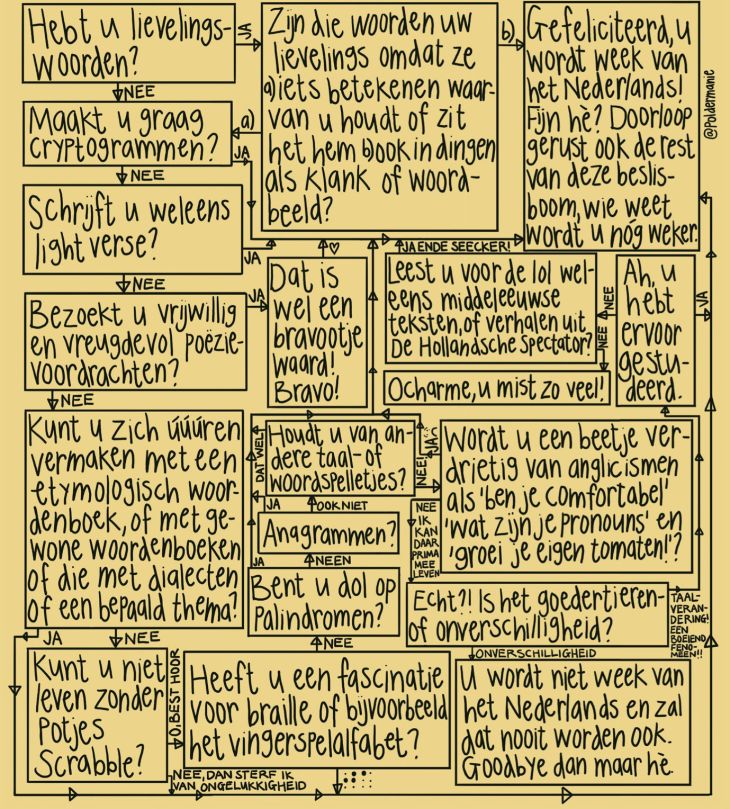 Hebt u lievelings-
woorden?
JA
NEE
Zijn die woorden uw
lievelings omdat ze
a) iets betekenen waar-
van u houdt of zit
het hem b) ook in dingen
als klank of woord-
beeld?
a)
b)
Gefeliciteerd, u
wordt week van
het Nederlands!
Fijn hè? Doorloop
gerust ook de rest
van deze beslis-
boom, wie weet
wordt u nóg weker.
@Poldermanie
Maakt u graag
cryptogrammen?
JA
NEE
Schrijft u weleens
light verse?
JA
NEE
Bezoekt u vrijwillig
en vreugdevol poëzie-
voordrachten?
JA
NEE
Dat is
wel een
bravootje
waard!
Bravo!
JA ENDE SEECKER!
Leest u voor de lol wel-
eens middeleeuwse
teksten, of verhalen uit
De Hollandsche Spectator?
NEE
NEE
Ocharme, u mist zo veel!
Ah, u
hebt
ervoor
gestu-
deerd.
JA
Kunt u zich úúúren
vermaken met een
etymologisch woor-
denboek, of met ge-
wone woordenboeken
of die met dialecten
of een bepaald thema?
JA
NEE
Houdt u van an-
dere taal- of
woordspelletjes?
DAT WEL
NEE!
JA
OOK NIET
Anagrammen?
JA
NEEN
Bent u dol op
Palindromen?
NEE
Wordt u een beetje ver-
drietig van anglicismen
als 'ben je comfortabel'
'wat zijn je pronouns' en
'groei je eigen tomaten!'?
JA
NEE
IK
KAN
DAAR
PRIMA
MEE
LEVEN
Echt?! Is het goedertieren-
of onverschilligheid?
TAAL-
VERAN-
DERING!
EEN
BOEIEND
FENO-
MEEN!!
ONVERSCHILLIGHEID
U wordt niet week van
het Nederlands en zal
dat nooit worden ook.
Goodbye dan maar hè.
Kunt u niet
leven zonder
potjes
Scrabble?
O, BEST HOOR
NEE, DAN STERF IK
VAN ONGELUKKIGHEID
Heeft u een fascinatie
voor braille of bijvoorbeeld
het vingerspelalfabet?